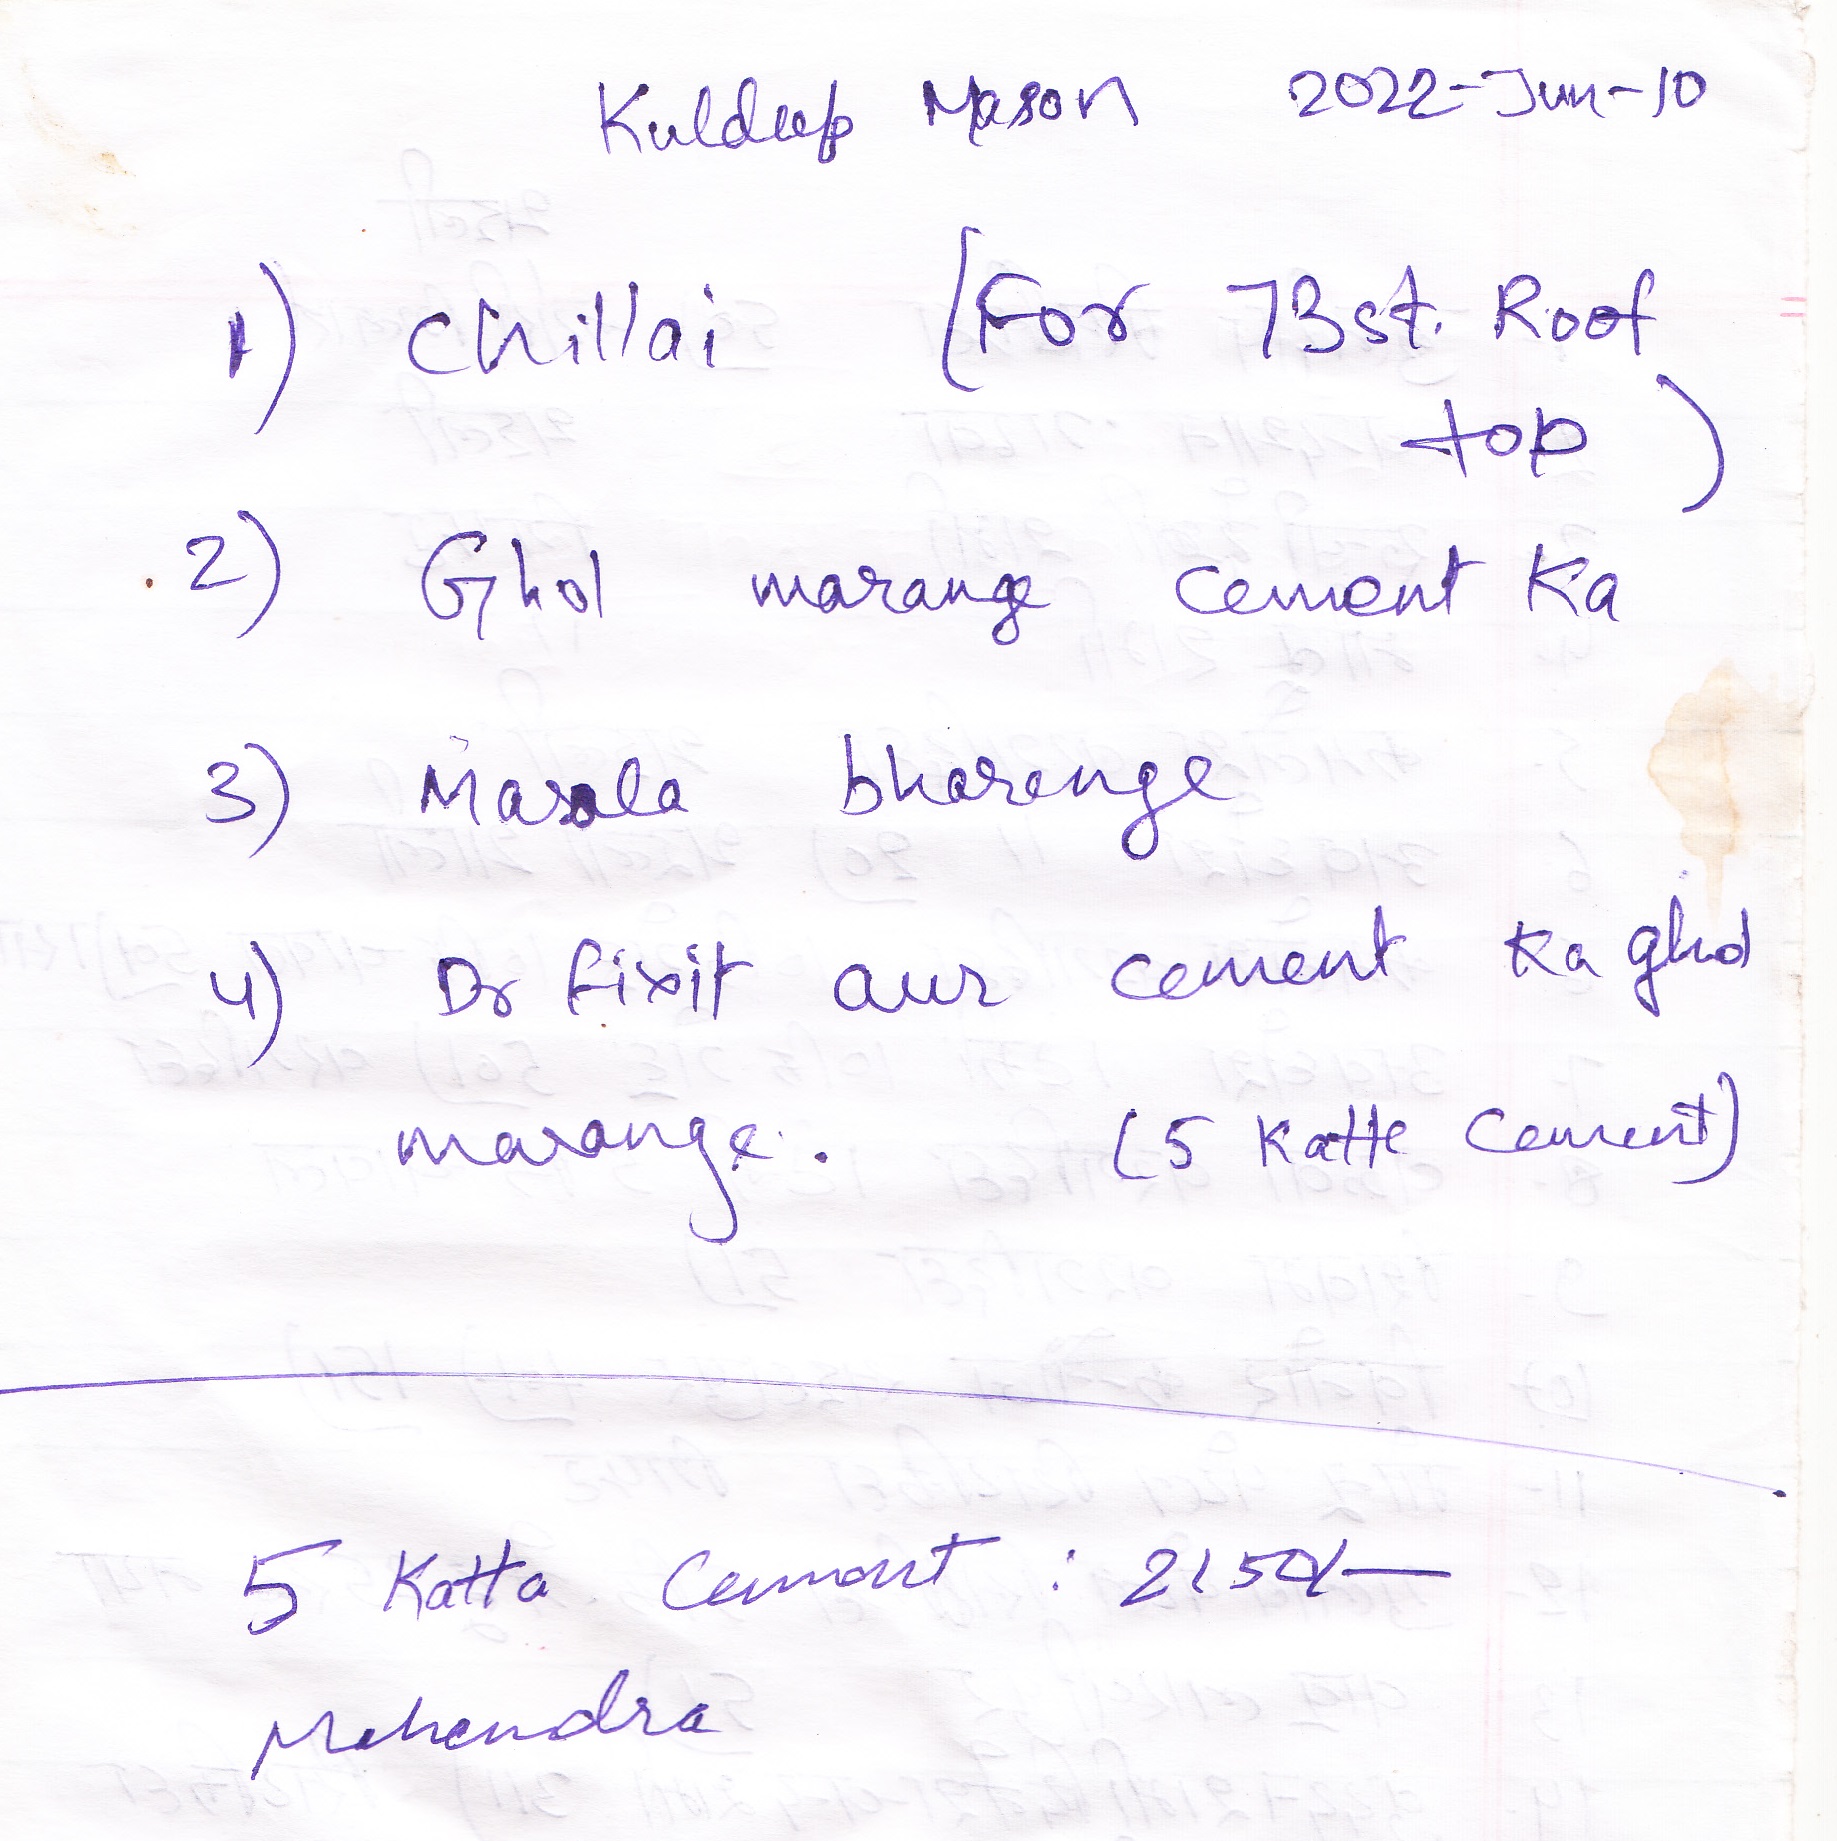 Kuldeep Mason 2022-Jun-10
1) Chillai (For 73st. Roof
top)
2) Ghol marange cement Ka
3) Masala bharenge
4) Dr fixit aur cement Ka ghol
marange. (5 Katte Cement)
5 Katta Cement : 2150/-
Mahendra